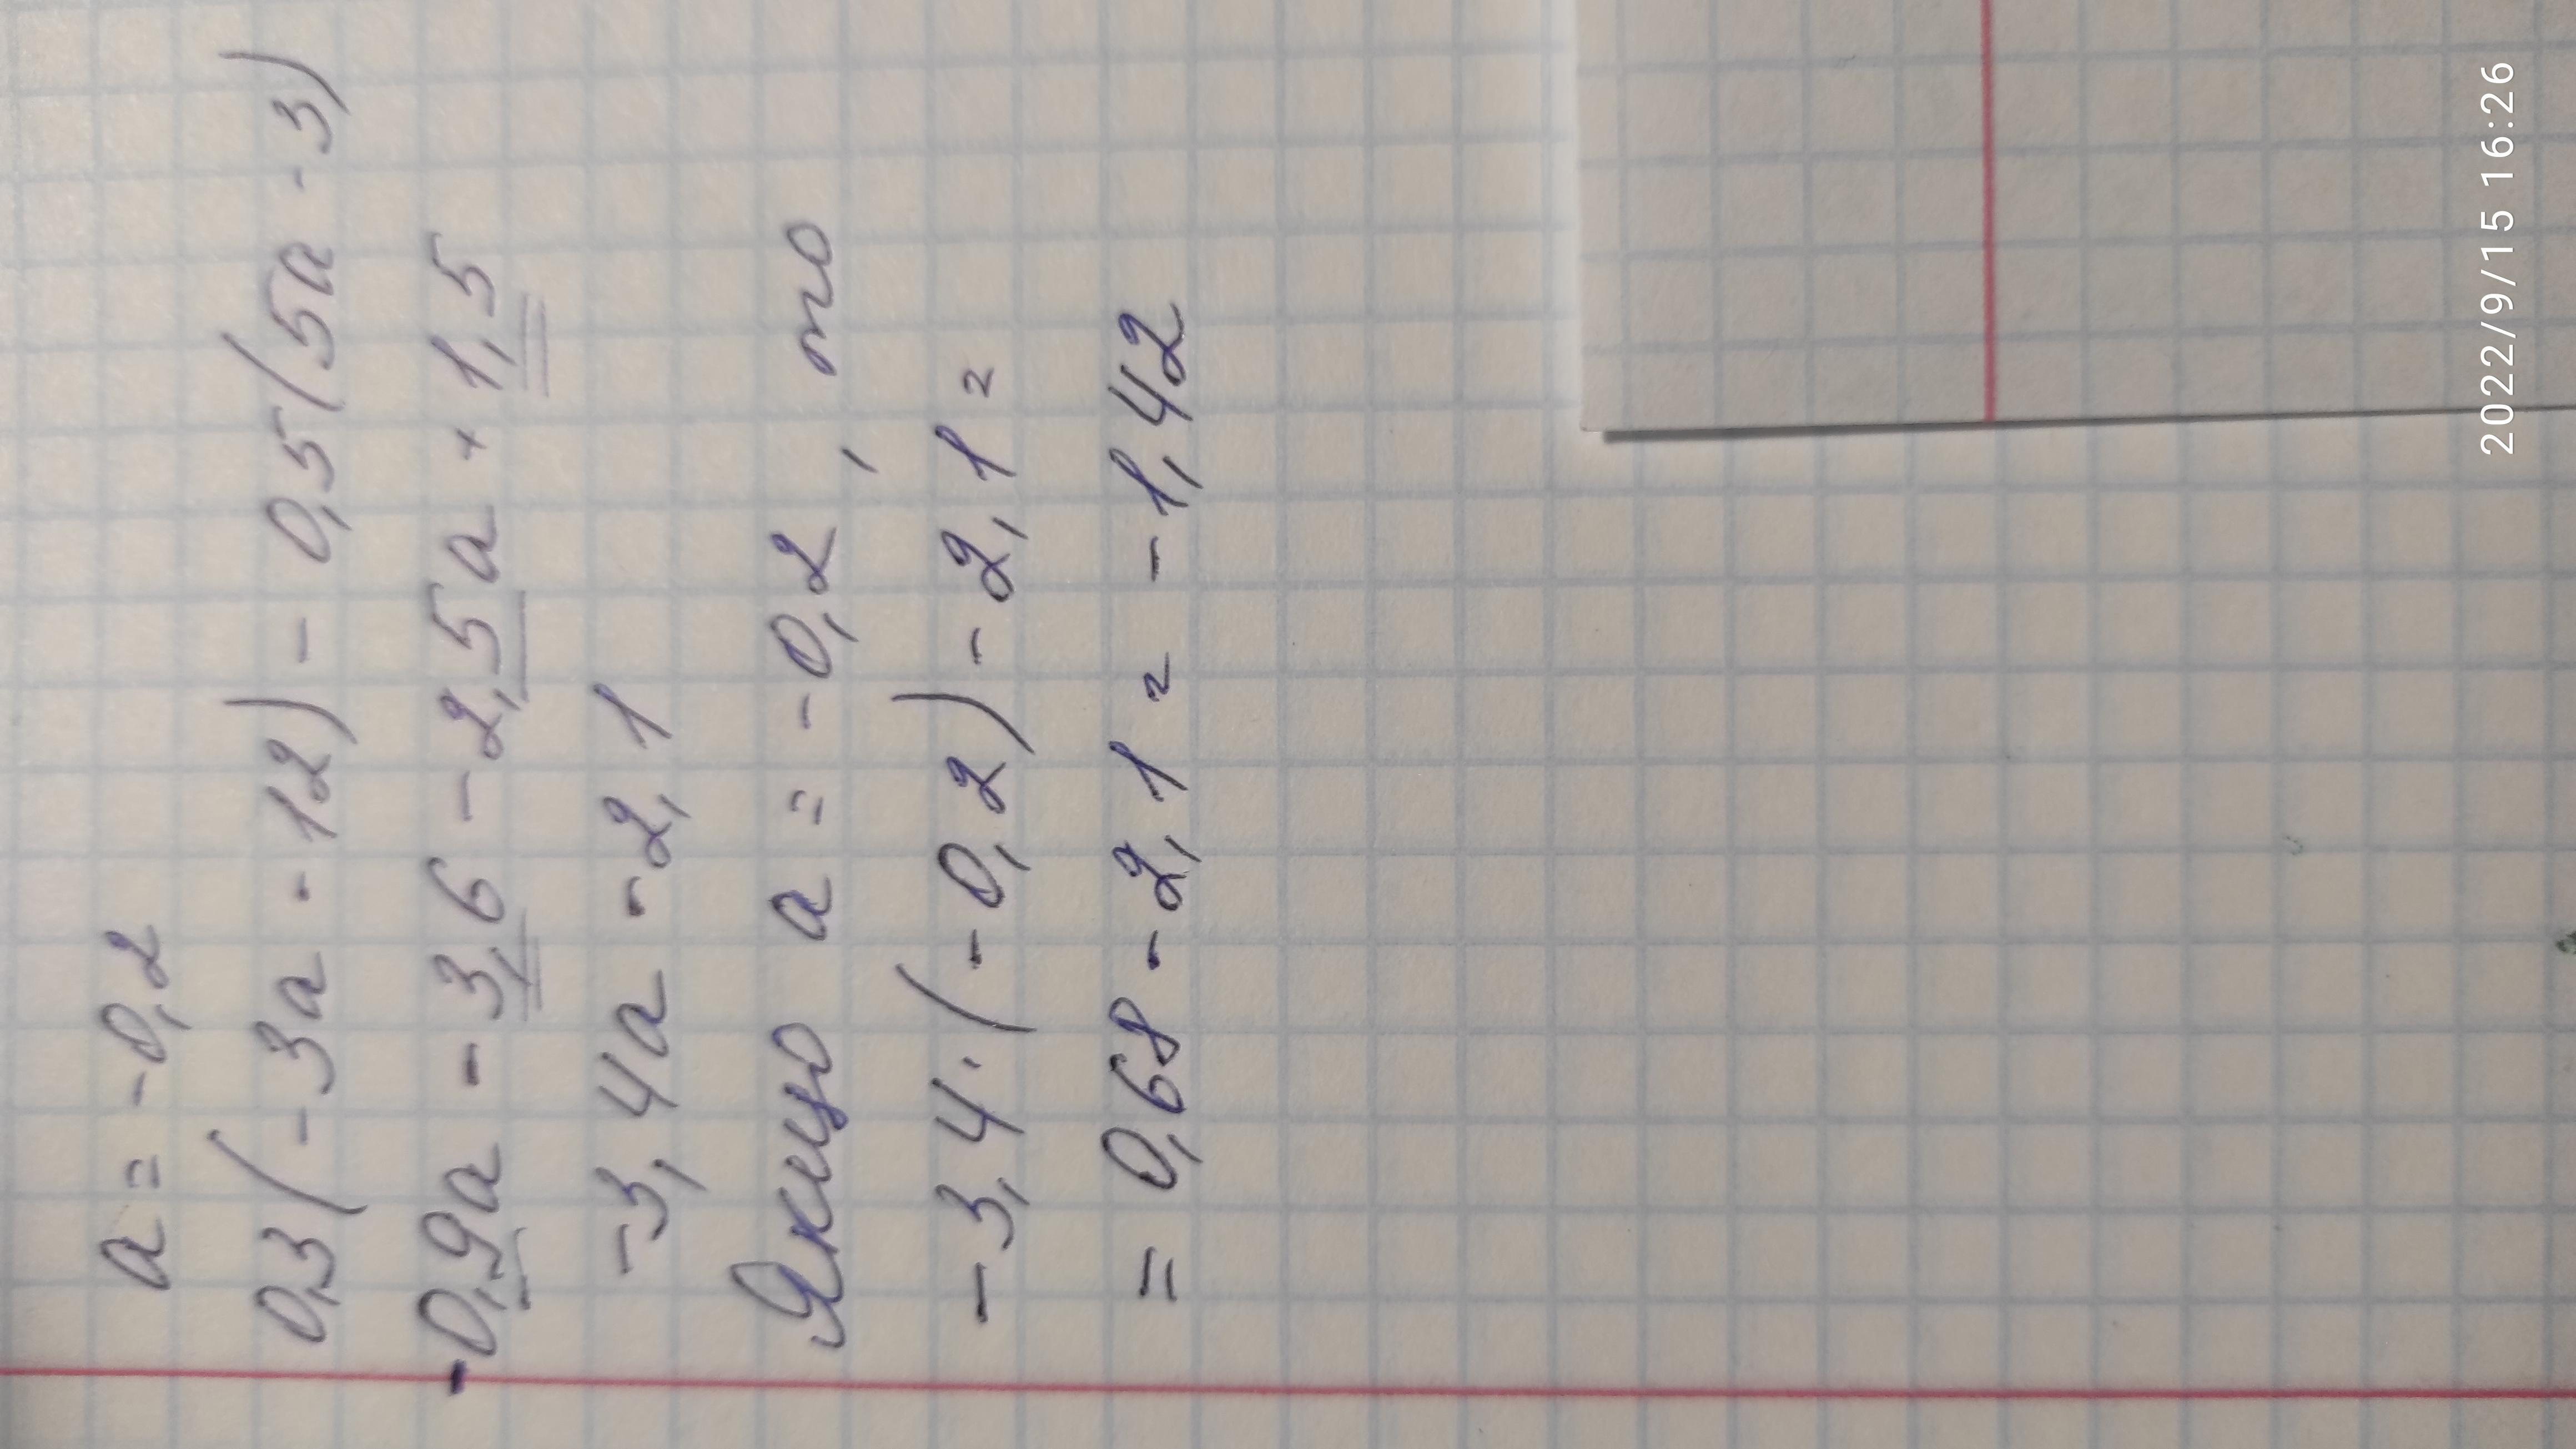 a = -0,2
0,3(-3a - 12) - 0,5(5a - 3)
-0,9a - 3,6 - 2,5a + 1,5
-3,4a - 2,1
Якщо a = -0,2, то
-3,4·(-0,2) - 2,1 =
= 0,68 - 2,1 = -1,42
2022/9/15 16:26